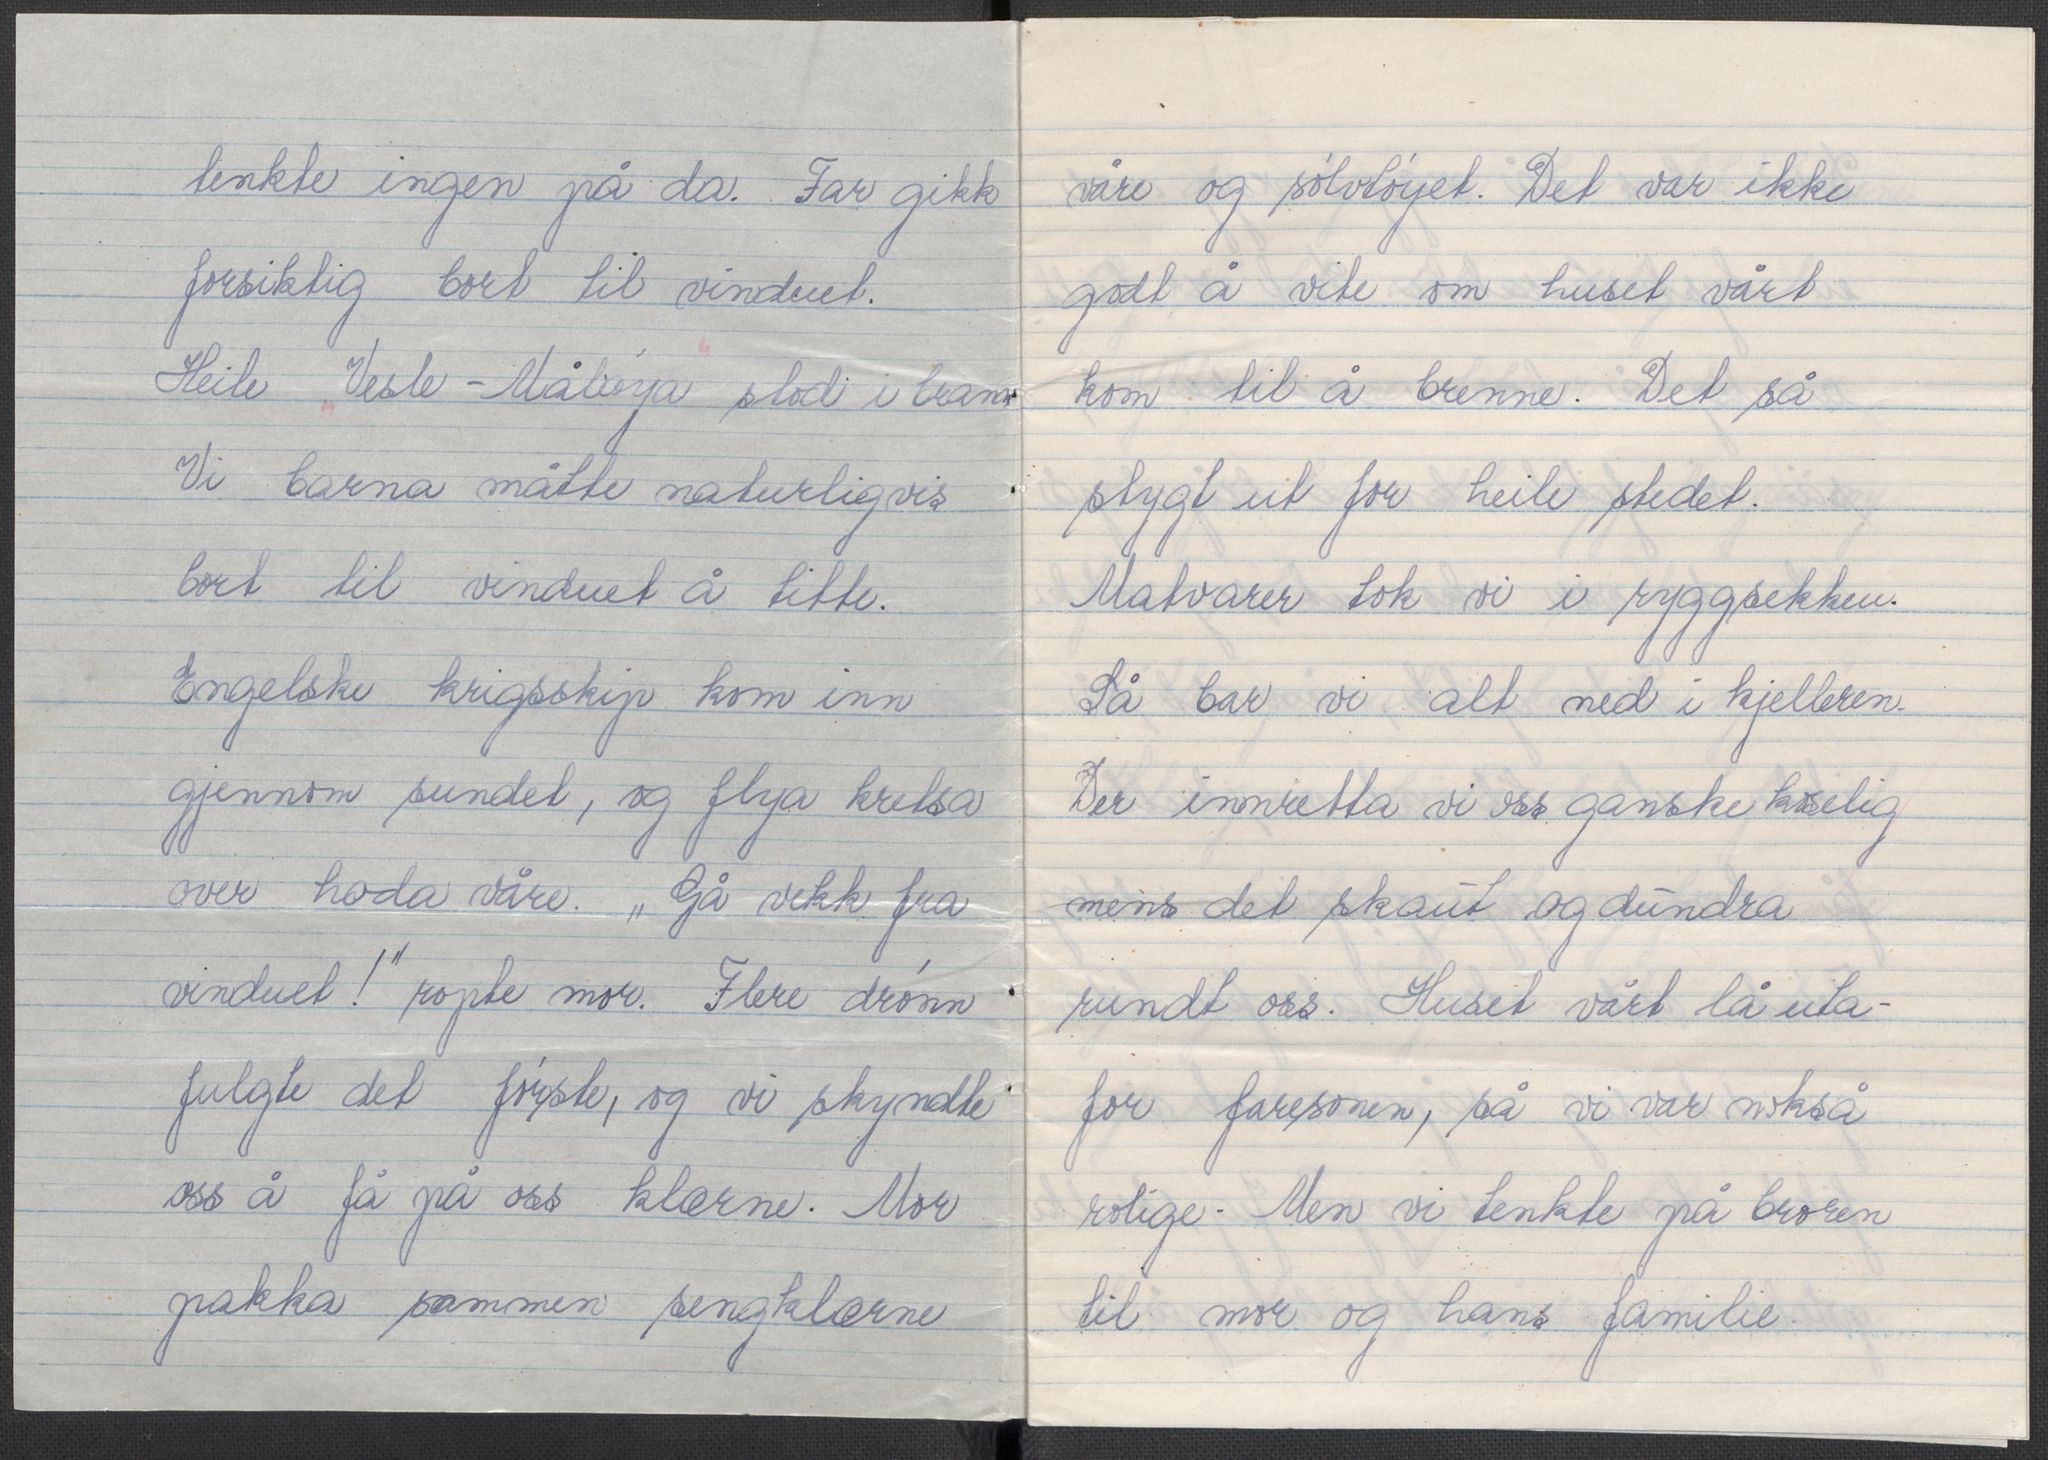 tenkte ingen på da. Far gikk
forsiktig bort til vinduet.
Heile "Vesle-Måløya" stod i brann.
Vi barna måtte naturligvis
bort til vinduet å titte.
Engelske krigsskip kom inn
gjennom sundet, og flya kretsa
over hoda våre. „Gå vekk fra
vinduet!" ropte mor. Flere drønn
fulgte det første, og vi skyndte
oss å få på oss klærne. Mor
pakka sammen sengklærne
våre og sølvtøyet. Det var ikke
godt å vite om huset vårt
kom til å brenne. Det så
stygt ut for heile stedet.
Matvarer tok vi i ryggsekken.
Så bar vi alt ned i kjelleren.
Der innretta vi oss ganske koselig
mens det skaut og dundra
rundt oss. Huset vårt lå uta-
for faresonen, så vi var nokså
rolige. Men vi tenkte på broren
til mor og hans familie.